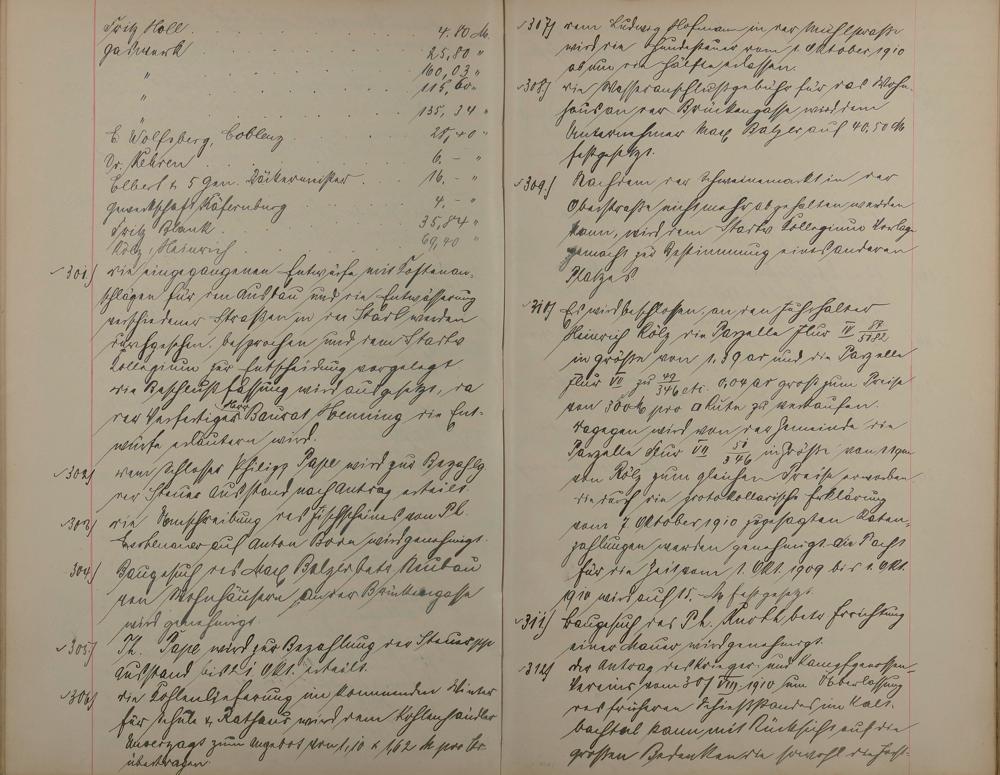 Fritz Holl . . . 4.80 M
Gaswerk . . . 25,80 "
" . . . 160,03 "
" . . . 115,60 "
" . . . 135,34 "
E. Wolfsberg, Coblenz . . . 28,40 "
Dr. Kehren . . . 6.– "
Elbert & 5 Gen. Bäckermeister . . . 16.– "
Gewerkschaft Käfernburg . . . 4.– "
Fritz Blank . . . 35,84 "
Kölz, Heinrich . . . 69,40 "
301) die eingegangenen Entwürfe mit Kostenan-
schlägen für den Ausbau und die Entwässerung
verschiedener Straßen in der Stadt werden
durchgesehen, besprochen und dem Stadtv
Kollegium zur Entscheidung vorgelegt
die Beschlußfassung wird ausgesetzt, da
der Verfertiger Herr Baurat Henning die Ent-
würfe erläutern wird.
302) dem Schlosser Philipp Pape wird zur Bezahlg
der Steuer Ausstand nach Antrag erteilt.
303) die Umschreibung des Fischscheines von Ph.
auf Anton Born wird genehmigt.
304) Baugesuch des Max Balzer betr. Neubau
von Wohnhäusern an der Brückengasse
wird genehmigt.
305) Th. Pape wird zur Bezahlung der Steuer pp
Ausstand bis z. 1 Okt. erteilt.
306) die Kohlenlieferung im kommenden Winter
für Schule & Rathaus wird dem Kohlenhändler
Unverzagt zum Angebot von 1,10 & 1,62 M pro Ctr
übertragen.
307) dem Ludwig Hofmann in der Mühlstraße
wird die Hundesteuer vom 1. Oktober 1910
ab um die Hälfte erlassen.
308) die Wasseranschlußgebühr für das Wohn-
haus an der Brückengasse wird dem
Unternehmer Max Balzer auf 40.50 M
festgesetzt.
309) Nachdem der Schweinemarkt in der
Oberstraße nicht mehr abgehalten werden
kann, wird dem Stadtv Kollegium Vorlag
gemacht zur Bestimmung eines anderen
Platzes
310) Es wird beschlossen, an den Fuhrhalter
Heinrich Kölz die Parzelle Flur IV
in größe von 1.39 ar und die Parzelle
Flur VII zu 49/346 etc. 0,04 ar groß zum Preise
von 300 M pro □ Rute zu verkaufen.
Dagegen wird von der Gemeinde die
Parzelle Flur VII 51/346 in Größe von 11 qm
von Kölz zum gleichen Preise erworben
die durch die protokollarische Erklärung
vom 7 Oktober 1910 zugesagten Raten-
zahlungen werden genehmigt. die Pacht
für die Zeit vom 1. Okt. 1909 bis 1. Okt.
1910 wird auf 15.– M festgesetzt.
311) Baugesuch des Ph. Knoth betr Errichtung
einer Mauer wird genehmigt.
312) der Antrag des Krieger- und Kampfgenossen-
Vereins vom 30/VIII. 1910 um Überlassung
des früheren Schießstandes im Kalt-
bachtal kann mit Rücksicht auf die
großen Bedenken die sowohl die Forst-